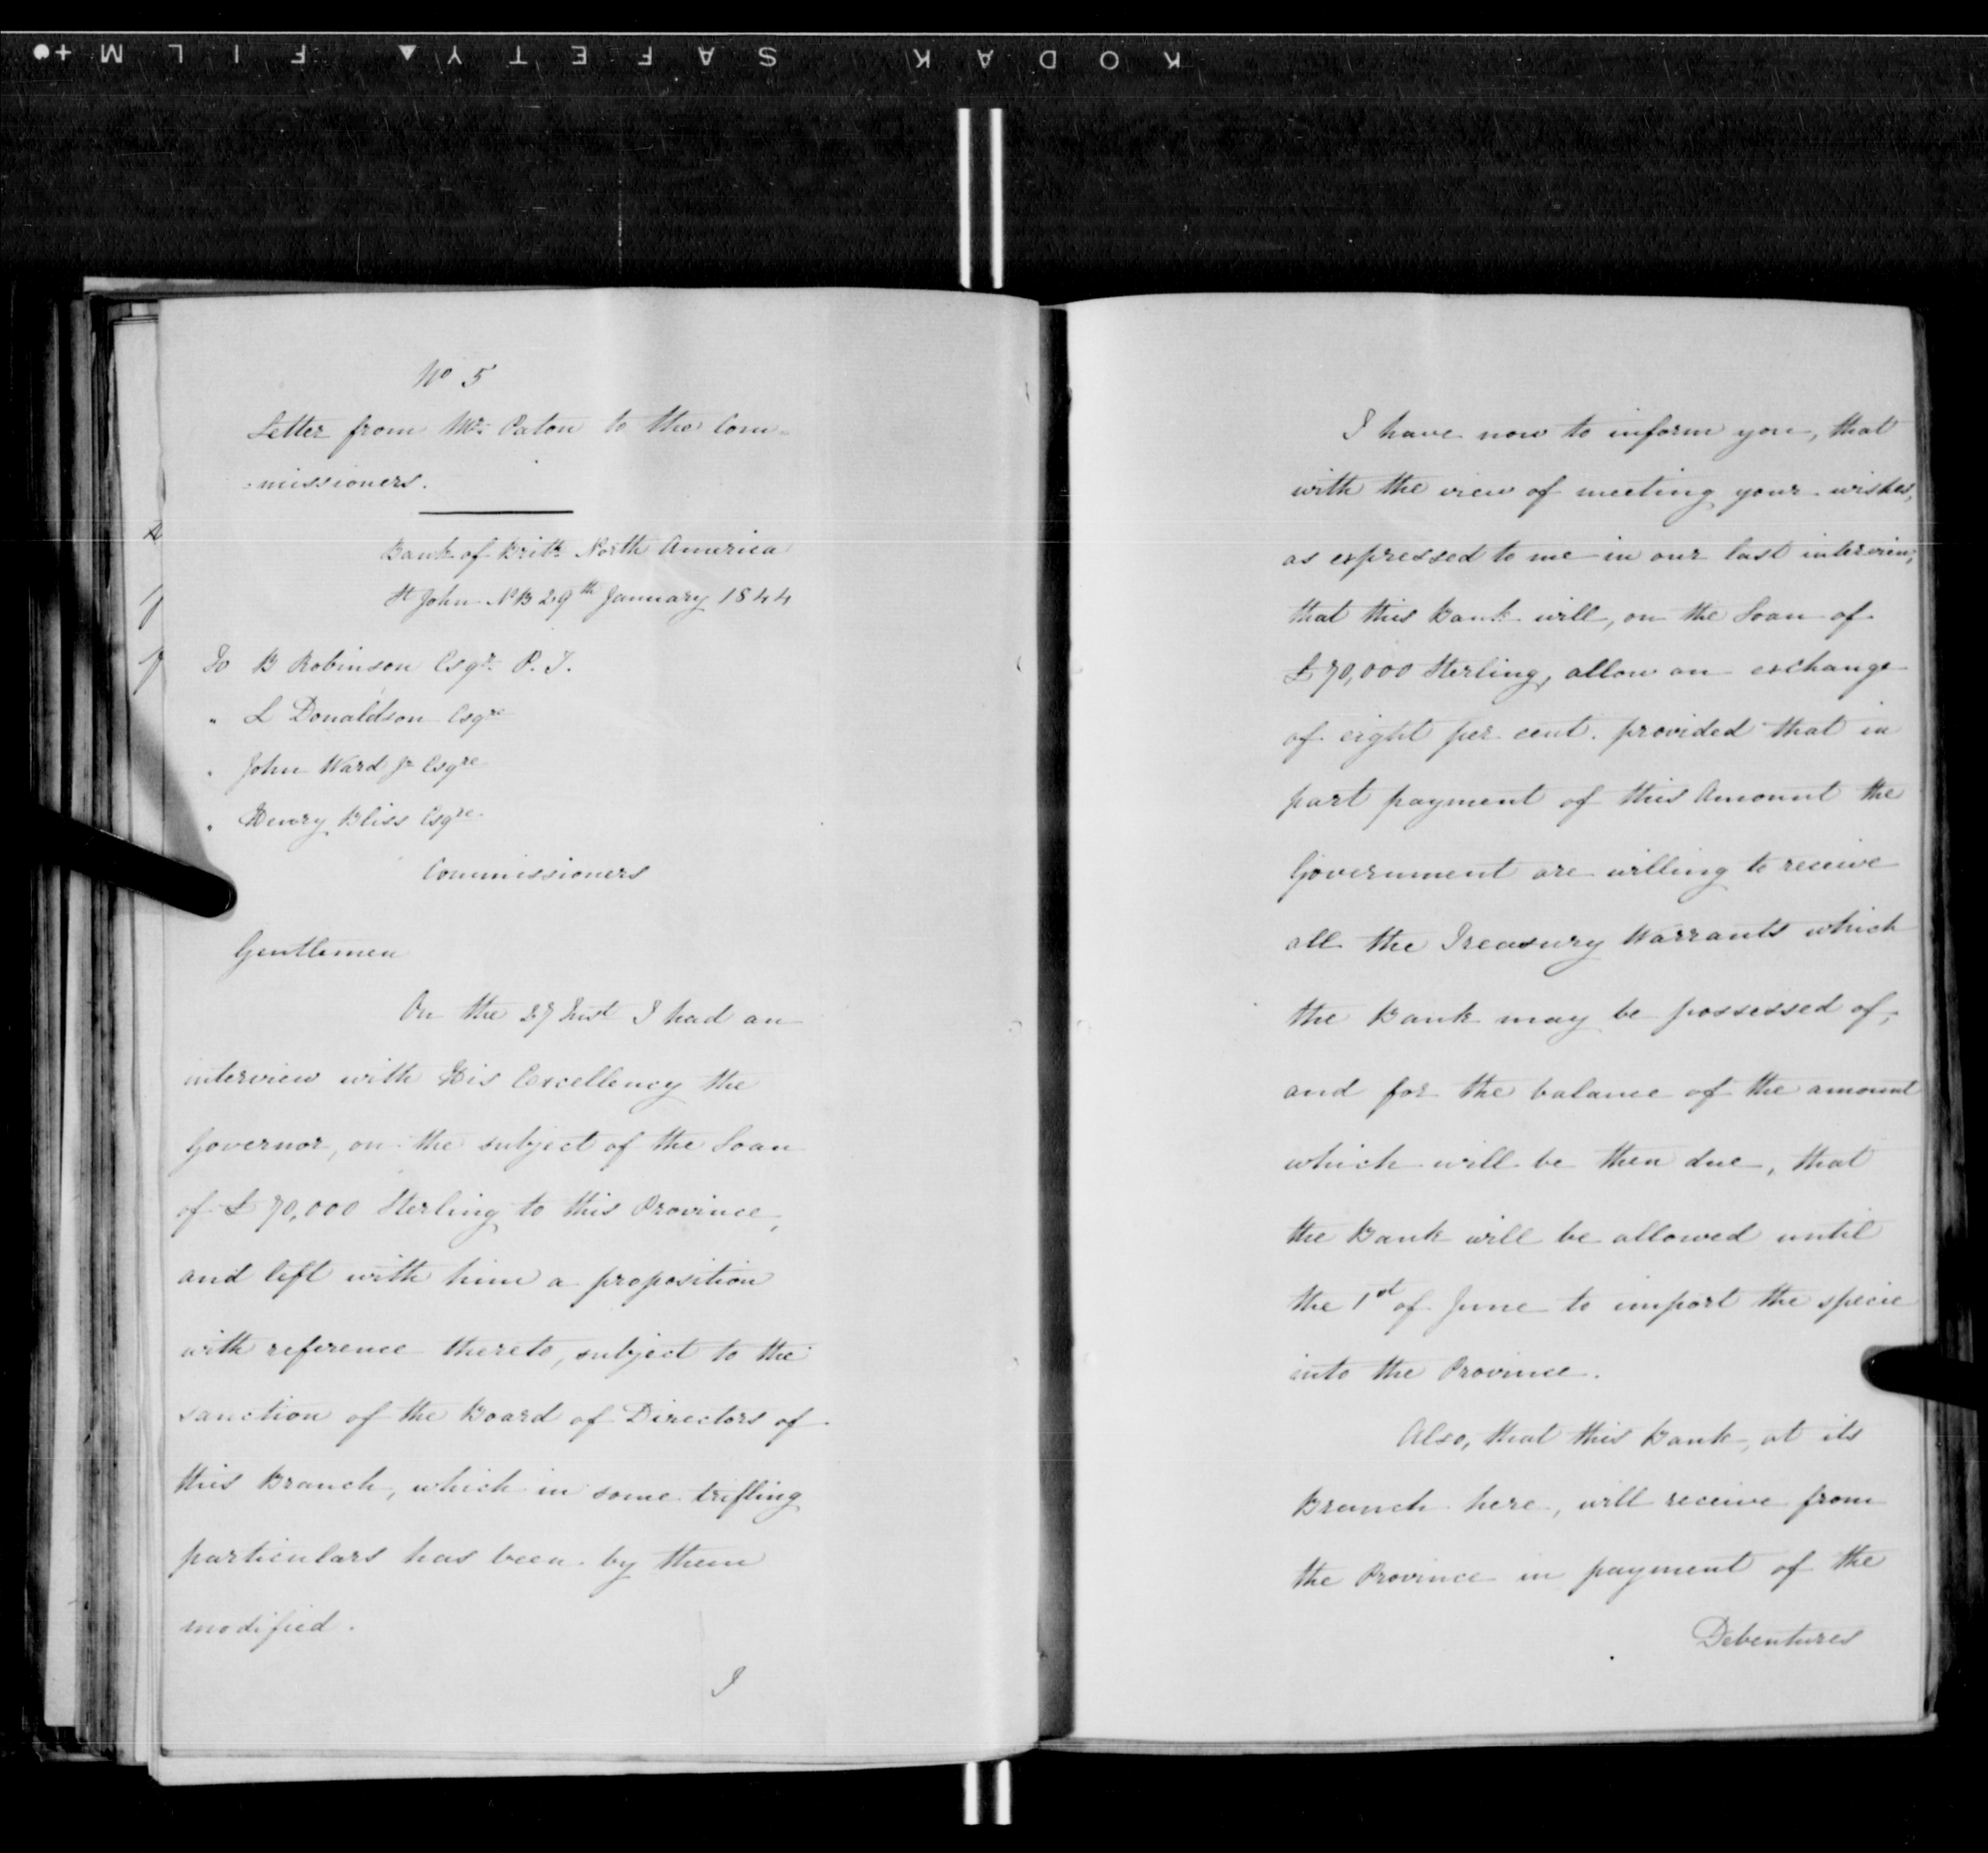 KODAK SAFETY ▲ FILM +●
No 5
Letter from Mr. Paton to the Com=
=missioners.
Bank of Brith North America
St John NB 29th January 1844
To B Robinson Esqr. P. T.
" L Donaldson Esqre
" John Ward Jr Esqre
" Henry Bliss Esqre.
Commissioners
Gentlemen
On the 27 Inst I had an
interview with His Excellency the
Governor, on the subject of the Loan
of £70,000 Sterling to this Province,
and left with him a proposition
with reference thereto, subject to the
sanction of the Board of Directors of
this Branch, which in some trifling
particulars has been by them
modified.
I
I have now to inform you, that
with the view of meeting your wishes,
as expressed to me in our last interview,
that this Bank will, on the Loan of
£70,000 Sterling, allow an exchange
of eight per cent. provided that in
part payment of this Amount the
Government are willing to receive
all the Treasury Warrants which
the Bank may be possessed of,
and for the balance of the amount
which will be then due, that
the Bank will be allowed until
the 1st of June to import the specie
into the Province.
Also, that this Bank, at its
Branch here, will receive from
the Province in payment of the
Debentures